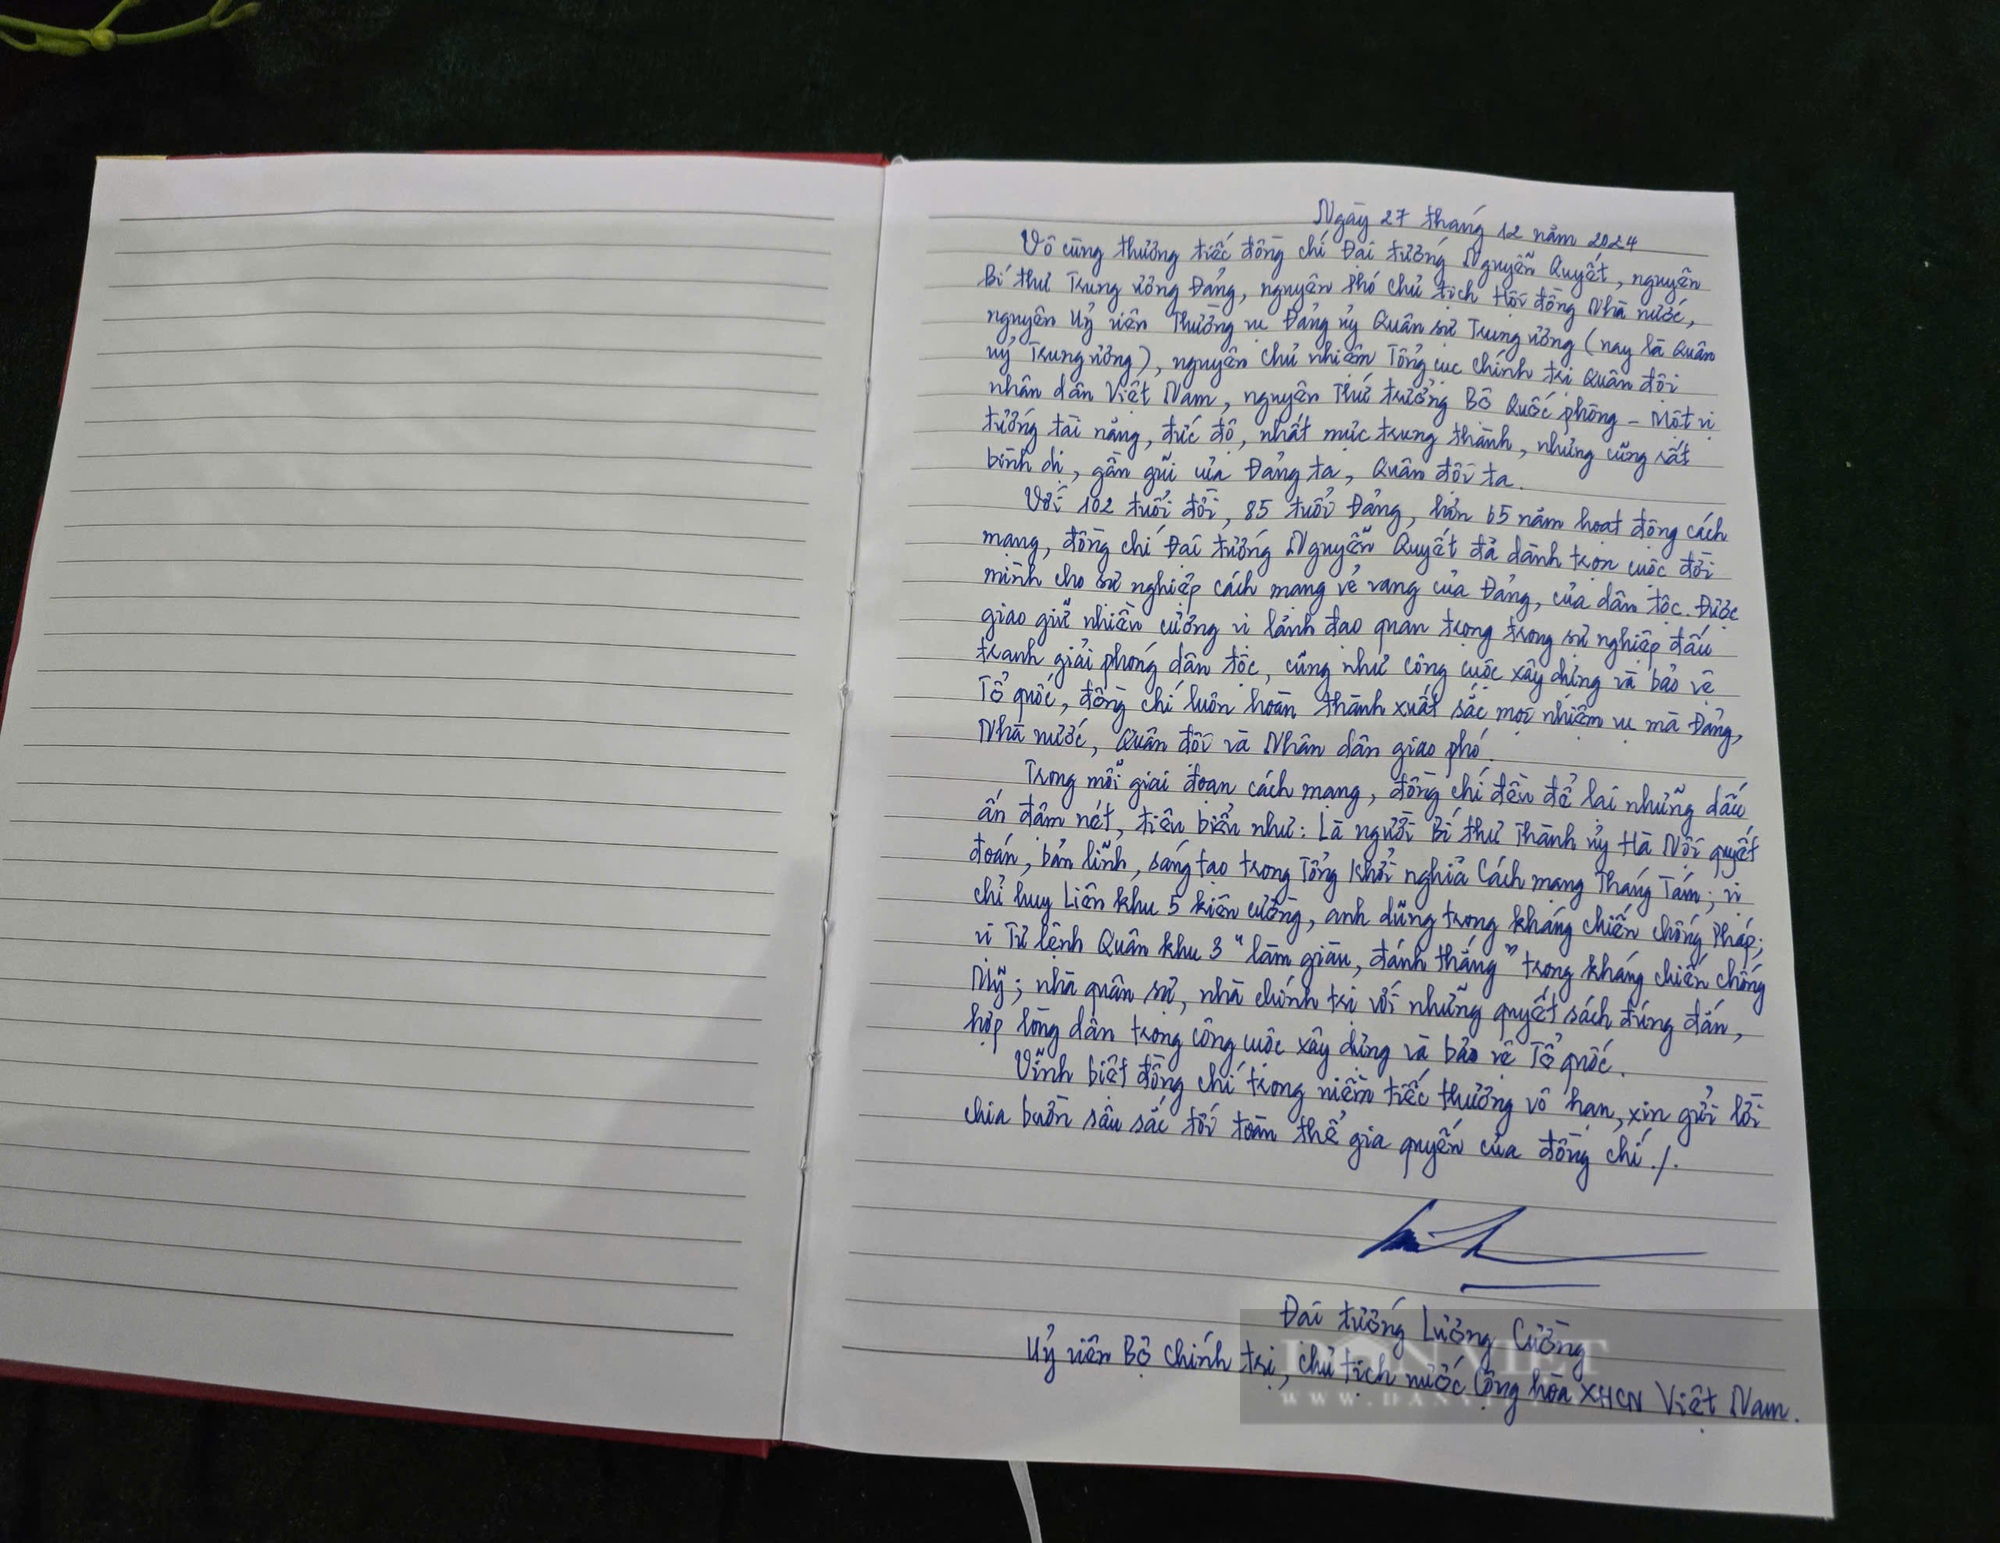 Ngày 27 tháng 12 năm 2024
Vô cùng thương tiếc đồng chí Đại tướng Nguyễn Quyết, nguyên
Bí thư Trung ương Đảng, nguyên Phó chủ tịch Hội đồng Nhà nước,
nguyên Uỷ viên Thường vụ Đảng ủy Quân sự Trung ương (nay là Quân
uỷ Trung ương), nguyên chủ nhiệm Tổng cục chính trị Quân đội
nhân dân Việt Nam, nguyên Thứ trưởng Bộ Quốc phòng - Một vị
tướng tài năng, đức độ, nhất mực trung thành, nhưng cũng rất
bình dị, gần gũi của Đảng ta, Quân đội ta.
Với 102 tuổi đời, 85 tuổi Đảng, hơn 65 năm hoạt động cách
mạng, đồng chí Đại tướng Nguyễn Quyết đã dành trọn cuộc đời
mình cho sự nghiệp cách mạng vẻ vang của Đảng, của dân tộc. Được
giao giữ nhiều cương vị lãnh đạo quan trọng trong sự nghiệp đấu
tranh giải phóng dân tộc, cũng như công cuộc xây dựng và bảo vệ
Tổ quốc, đồng chí luôn hoàn thành xuất sắc mọi nhiệm vụ mà Đảng,
Nhà nước, Quân đội và Nhân dân giao phó.
Trong mỗi giai đoạn cách mạng, đồng chí đều để lại những dấu
ấn đậm nét, tiêu biểu như: Là người Bí thư Thành ủy Hà Nội quyết
đoán, bản lĩnh, sáng tạo trong Tổng khởi nghĩa Cách mạng Tháng Tám; vị
chỉ huy Liên khu 5 kiên cường, anh dũng trong kháng chiến chống Pháp;
vị Tư lệnh Quân khu 3 "làm giàu, đánh thắng" trong kháng chiến chống
Mỹ; nhà quân sự, nhà chính trị với những quyết sách đúng đắn,
hợp lòng dân trong công cuộc xây dựng và bảo vệ Tổ quốc.
Vĩnh biệt đồng chí trong niềm tiếc thương vô hạn, xin gửi lời
chia buồn sâu sắc tới toàn thể gia quyến của đồng chí./.
Đại tướng Lương Cường
Uỷ viên Bộ chính trị, chủ tịch nước Cộng hòa XHCN Việt Nam.